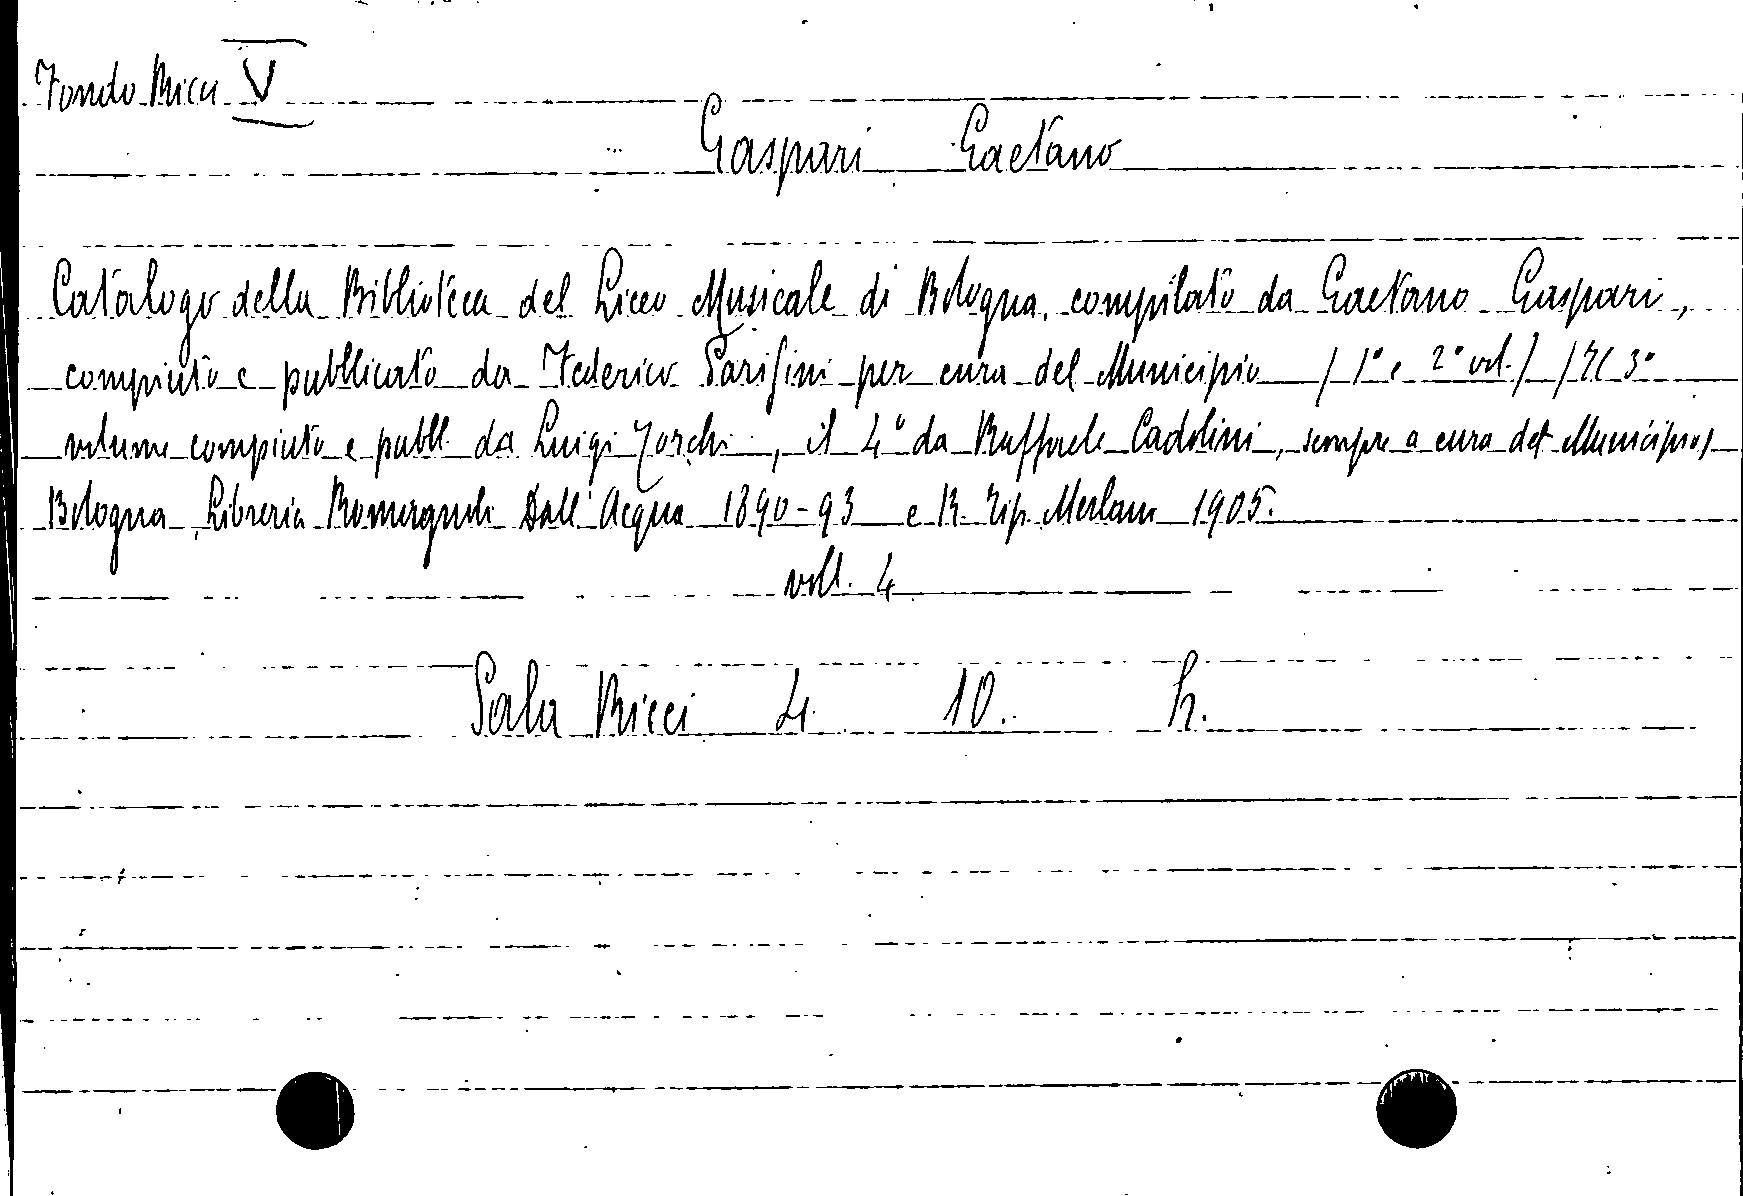 Fondo Ricci V
Gaspari Gaetano
Catalogo della Biblioteca del Liceo Musicale di Bologna, compilato da Gaetano Gaspari,
compiuto e pubblicato da Federico Parisini per cura del Municipio (1° e 2° vol.) (Il 3°
volume compiuto e pubbl. da Luigi Torchi, il 4° da Raffaele Cadolini, sempre a cura del Municipio)
Bologna, Libreria Romagnoli Dall'Acqua 1890-93 e R. Tip. Merlani 1905.
voll. 4
Sala Ricci 4. 10. h.